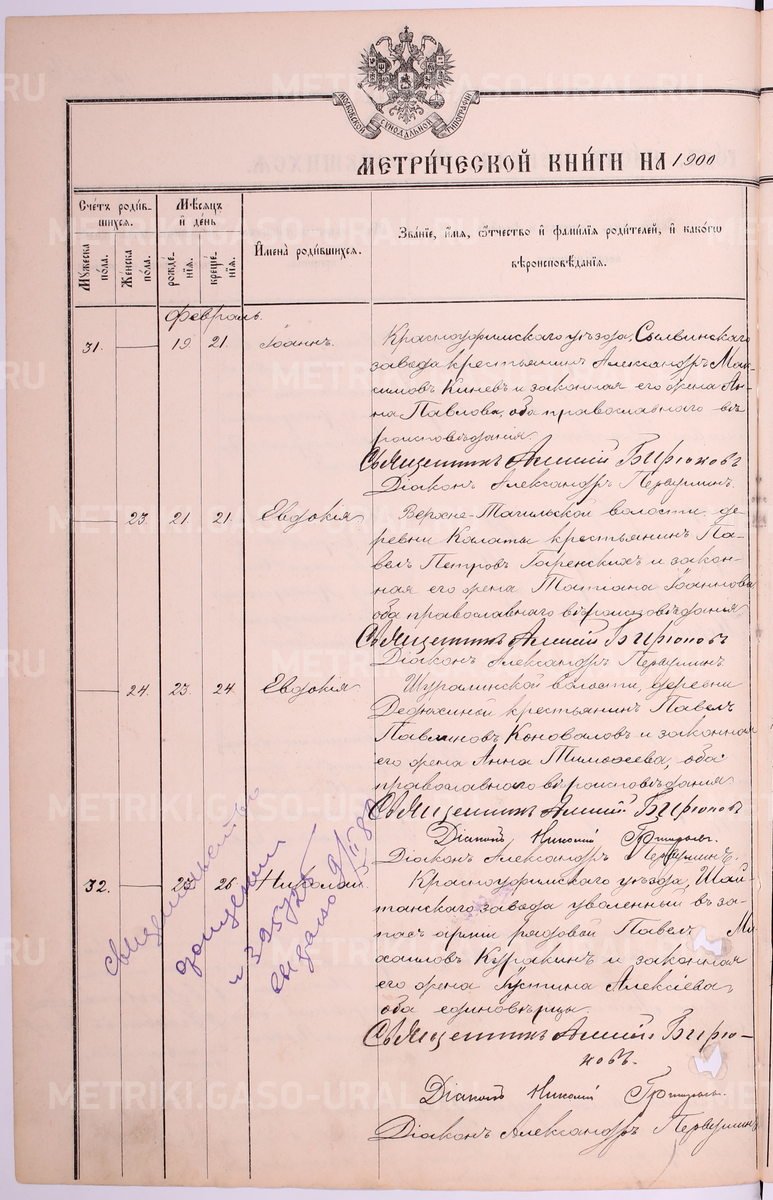 МОСКОВСКОЙ СѴНОДАЛЬНОЙ ТИПОГРАФІИ
МЕТРИ́ЧЕСКОЙ КНИ́ГИ НА 1900
Сче́тъ роди́в-
шихсѧ.
Мѣ́сѧцъ
и҆ де́нь
И҆мена̀ роди́вшихсѧ.
Зва́нїе, и҆́мѧ, ѻ҆́тчество и҆ фами́лїѧ роди́телей, и҆ како́гѡ
вѣроисповѣ́данїѧ.
Мꙋ́жеска
по́ла.
Же́нска
по́ла.
рожде́-
нїѧ.
креще́-
нїѧ.
Февраль.
31. 19 21. Іоаннъ.
Красноуфимскаго уѣзда, Сылвинскаго
завода крестьянинъ Александръ Мак-
симовъ Киневъ и законная его жена Ан-
на Павлова, оба православнаго вѣ-
роисповѣданія
Священникъ Бирюковъ
Діаконъ Александръ Первушинъ.
23. 21. 21. Евдокія
Верхне-Тагильской волости, де-
ревни Калаты крестьянинъ Па-
велъ Петровъ Гаренскихъ и закон-
ная его жена Татіана Іоаннова
оба православнаго вѣроисповѣданія
Священникъ Бирюковъ
Діаконъ Александръ Первушинъ
24. 23. 24. Евдокія
Шуралинской волости, деревни
крестьянинъ Павелъ
Коноваловъ и законная
его жена Анна Тимоѳеева, оба
православнаго вѣроисповѣданія
Священникъ Бирюковъ
Діаконъ Николай
Діаконъ Александръ Первушинъ.
32. 26. Николай
Красноуфимскаго уѣзда, Шай-
танскаго завода уволенный въ за-
пасъ арміи рядовой Павелъ Ми-
хаиловъ Куракинъ и законная
его жена Іустина Алексіева,
оба единовѣрцы.
Священникъ Бирю-
ковъ.
Діаконъ Николай
Діаконъ Александръ Первушинъ
свидетельство
выдано